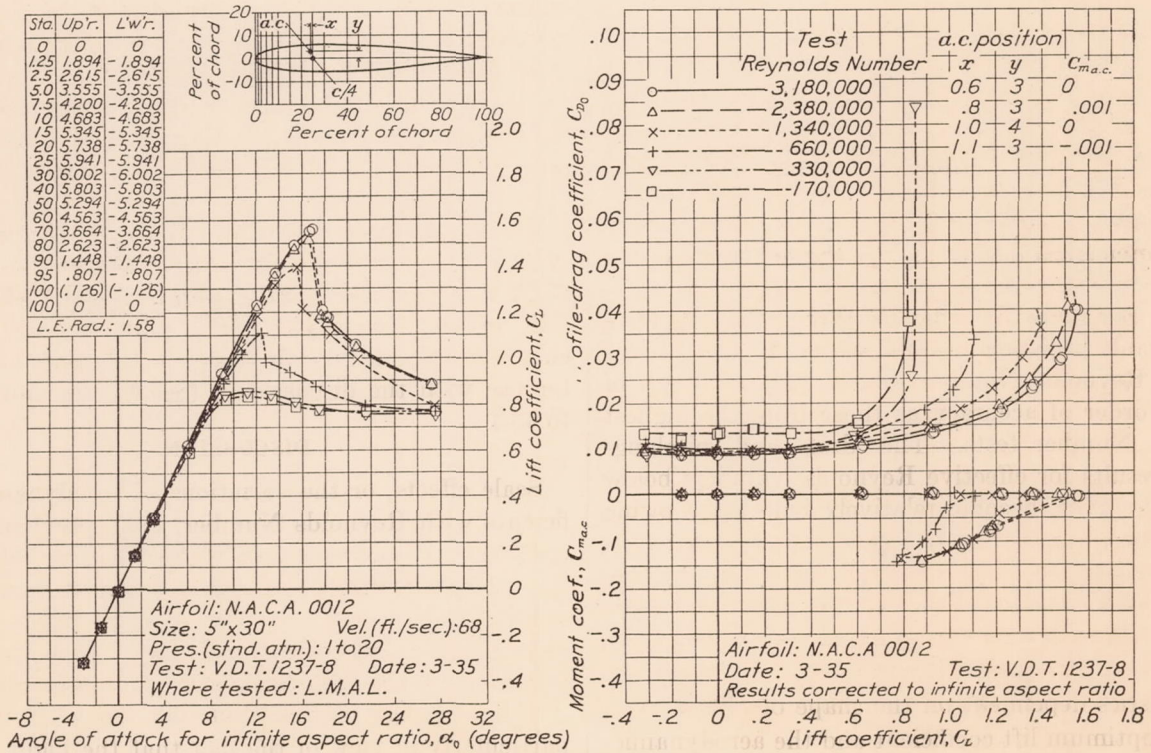 Sta. Up'r. L'w'r.
0 0 0
1.25 1.894 -1.894
2.5 2.615 -2.615
5.0 3.555 -3.555
7.5 4.200 -4.200
10 4.683 -4.683
15 5.345 -5.345
20 5.738 -5.738
25 5.941 -5.941
30 6.002 -6.002
40 5.803 -5.803
50 5.294 -5.294
60 4.563 -4.563
70 3.664 -3.664
80 2.623 -2.623
90 1.448 -1.448
95 .807 - .807
100 (.126) (-.126)
100 0 0
L.E. Rad.: 1.58
Percent of chord
20
10
0
-10
a.c. x y
c/4
0 20 40 60 80 100
Percent of chord
2.0
1.8
1.6
1.4
1.2
1.0
.8
.6
.4
.2
0
-.2
-.4
Lift coefficient, C_L
Airfoil: N.A.C.A. 0012
Size: 5"x30" Vel.(ft./sec.):68
Pres.(st'nd. atm.): 1 to 20
Test: V.D.T. 1237-8 Date: 3-35
Where tested: L.M.A.L.
-8 -4 0 4 8 12 16 20 24 28 32
Angle of attack for infinite aspect ratio, α₀ (degrees)
.10
.09
.08
.07
.06
.05
.04
.03
.02
.01
0
-.1
-.2
-.3
-.4
ofile-drag coefficient, C_D₀
Moment coef., C_m a.c.
Test a.c. position
Reynolds Number x y C_m a.c.
3,180,000 0.6 3 0
2,380,000 .8 3 .001
1,340,000 1.0 4 0
660,000 1.1 3 -.001
330,000
170,000
Airfoil: N.A.C.A 0012
Date: 3-35 Test: V.D.T. 1237-8
Results corrected to infinite aspect ratio
-.4 -.2 0 .2 .4 .6 .8 1.0 1.2 1.4 1.6 1.8
Lift coefficient, C_L